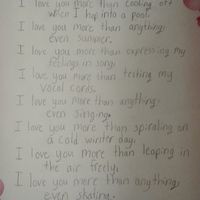 I love you more than cooling off
when I hop into a pool.
I love you more than anything,
even summer.
I love you more than expressing my
feelings in song.
I love you more than testing my
vocal cords.
I love you more than anything,
even singing.
I love you more than spiraling on
a cold winter day.
I love you more than leaping in
the air freely.
I love you more than anything,
even skating.